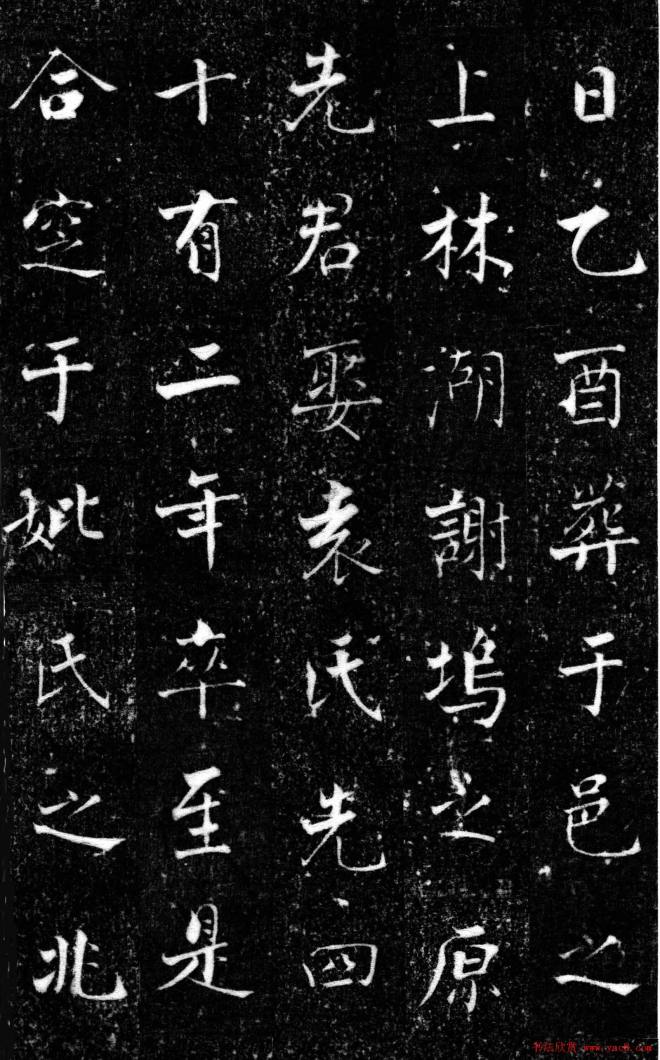 日乙酉葬于邑之
上林湖謝塢之原
先君娶袁氏先四
十有二年卒至是
合窆于妣氏之北
书法欣赏 www.yac8.com